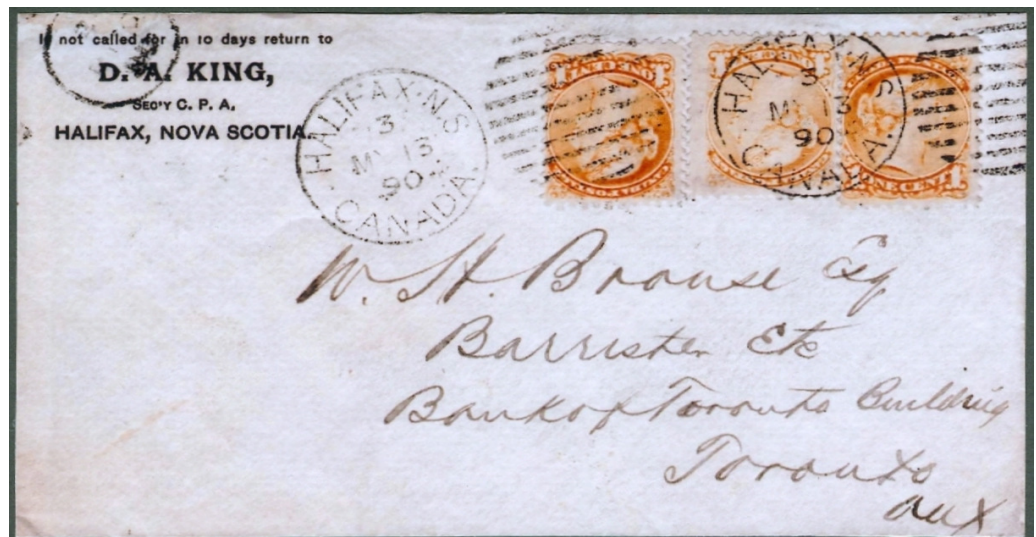 If not called for in 10 days return to
D. A. KING,
SEC'Y C. P. A.
HALIFAX, NOVA SCOTIA.
HALIFAX, N.S
3
MY 13
90
CANADA.
1 1
1 1
ONE CENT
HALIFAX, N.S
3
MY 13
90
CANADA.
W. H. Brouse Esq
Barrister Etc
Bank of Toronto Building
Toronto